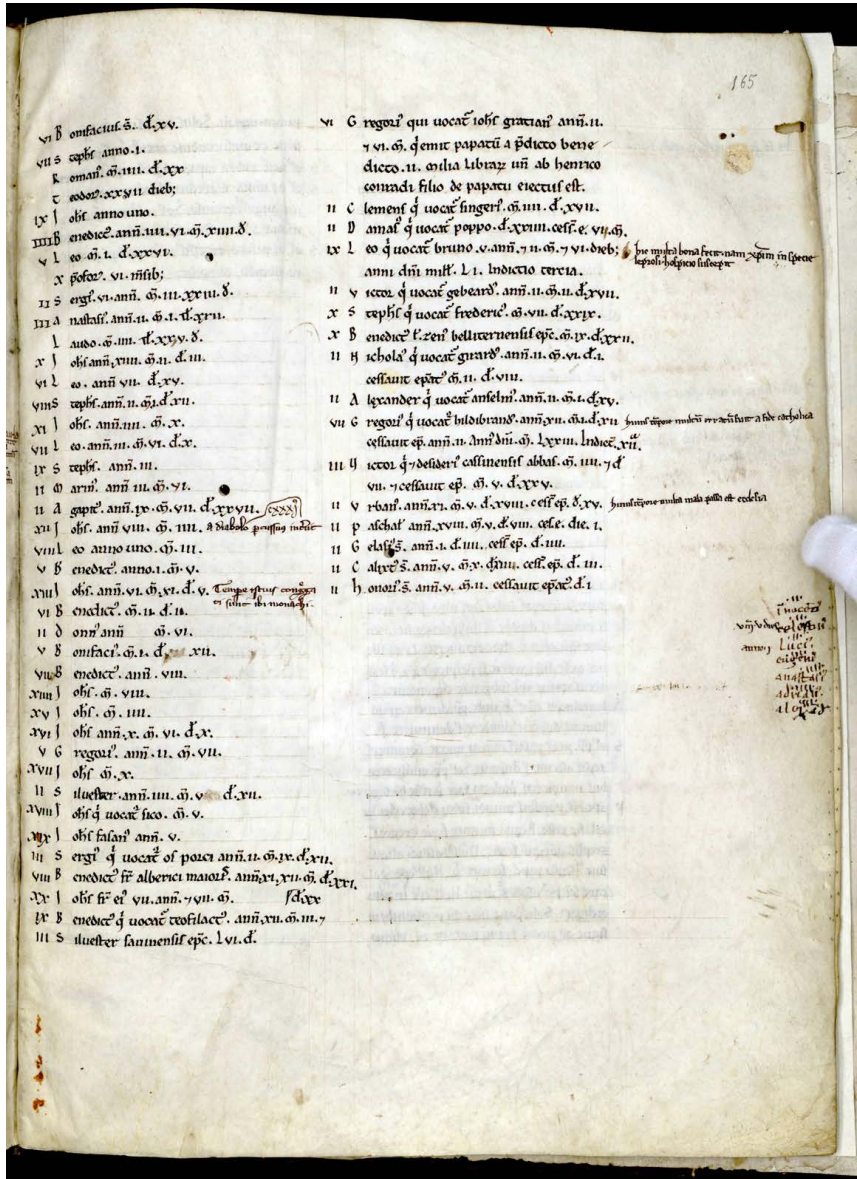 165
VI B onifacius. s̄. d̄. xv.
VII S teph̄s anno. i.
R oman᾽. m̄. iiii. d̄. xx
T eodor᾽. xx vii dieb;
IX I oh̄s anno uno.
IIII B enedict᾽. ann̄. iiii. vi. m̄. xiiii. d̄.
V L eo m̄. i. d̄. xxvi.
X p̄ofor᾽. vi. m̄sib;
II S ergi᾽. vi. ann̄. m̄. iii. xxiii. d̄.
III A nastasi᾽. ann̄. ii. m̄. i. d̄. xxii.
L audo. m̄. iiii. d̄. xxv. d̄.
X I oh̄s ann̄. xiiii. m̄. ii. d̄. iii.
VI L eo. ann̄ vii. d̄. xv.
VIII S teph̄s. ann̄. ii. m̄. i. d̄. xii.
XI I oh̄s. ann̄. iiii. m̄. x.
VII L eo. ann̄. iii. m̄. vi. d̄. x.
IX S teph̄s. ann̄. iii.
II M arin᾽. ann̄ iii. m̄. vi.
II A gapit᾽. ann̄. ix. m̄. vii. d̄. xxvii.
XII I oh̄s. ann̄ viii. m̄. iiii. a diabolo percussus
VIII L eo anno uno. m̄. iii.
V B enedict᾽. anno. i. m̄. v.
XIII I oh̄s. ann̄. vi. m̄. xi. d̄. v. Tempe istius cong̃ga
ti sunt ibi monachi.
VI B enedict᾽. m̄. ii. d̄. ii.
II D onn᾽ ann̄ m̄. vi.
V B onifaci᾽. m̄. i. d̄. xii.
VII B enedict᾽. ann̄. viii.
XIIII I oh̄s. m̄. viii.
XV I oh̄s. m̄. iiii.
XVI I oh̄s ann̄. x. m̄. vi. d̄. x.
V G regori᾽. ann̄. ii. m̄. vii.
XVII I oh̄s m̄. x.
II S iluester. ann̄. iiii. m̄. v d̄. xii.
XVIII I oh̄s q̇ uocat᾽ sico. m̄. v.
XIX I oh̄s fasan᾽ ann̄. v.
III S ergi᾽ q̇ uocat᾽ os porci ann̄. ii. m̄. ix. d̄. xii.
VIII B enedict᾽ fr̄ alberici maiori᾽. ann̄. xi. xii. m̄. d̄. xxi.
XX I oh̄s fr̄ ei᾽ vii. ann̄. ⁊ vii. m̄. d̄. xx
IX B enedict᾽ q̇ uocat᾽ teofilact᾽. ann̄. xii. m̄. iii. ⁊
III S iluester sauinensis ep̄c. l vi. d̄.
VI G regori᾽ qui uocat᾽ ioh̄s gratian᾽ ann̄. ii.
⁊ vi. m̄. q̇ emit papatū a p̄dicto bene
dicto. ii. milia libraꝝ un̄ ab henrico
conradi filio de papatu eiectus est.
II C lemens q̇ uocat᾽ singeri᾽. m̄. iiii. d̄. xvii.
II D amas᾽ q̇ uocat᾽ poppo. d̄. xxiii. cess̄. e. vii. m̄.
IX L eo q̇ uocat᾽ bruno. v. ann̄. ⁊ ii. m̄. ⁊ vi. dieb; hic multa bona fecit. nam xp̄m in specie
leprosi hospicio suscepit
anni dn̄i mill̄. L i. Indictio tercia.
II V ictor q̇ uocat᾽ gebeard᾽. ann̄. ii. m̄. ii. d̄. xvii.
X S teph̄s q̇ uocat᾽ frederic᾽. m̄. vii. d̄. xxix.
X B enedict᾽ belliternensis ep̄c. m̄. ix. d̄. xxii.
II N ichola᾽ q̇ uocat᾽ girard᾽. ann̄. ii. m̄. vi. d̄. i.
cessauit ep̄at᾽ m̄. ii. d̄. viii.
II A lexander q̇ uocat᾽ anselm᾽. ann̄. ii. m̄. i. d̄. xv.
VII G regori᾽ q̇ uocat᾽ hildibrand᾽. ann̄. xii. m̄. i. d̄. xii huius tēpore multū erratū fuit a fide catholica
cessauit ep̄. ann̄. ii. Ann᾽ dn̄i. m̄. Lxxiii. Indict᾽. xii.
III V ictor q̇ ⁊ desideri᾽ cassinensis abbas. m̄. iiii. ⁊ d̄
vii. ⁊ cessauit ep̄. m̄. v. d̄. xxv.
II V rban᾽. ann̄. xi. m̄. v. d̄. xviii. cess̄ ep̄. d̄. xv. huius tēpore multa mala passa est ecclesia
II P aschal᾽ ann̄. xviii. m̄. v. d̄. viii. ces. e. die. i.
II G elasi᾽ s̄. ann̄. i. d̄. iiii. cess̄ ep̄. d̄. iiii.
II C alixt᾽ s̄. ann̄. v. m̄. x. cess̄. ep̄. d̄. iii.
II H onori᾽ s̄. ann̄. v. m̄. ii. cessauit ep̄at᾽. d̄. i
anno i Luci᾽
eugeni᾽
anastasi᾽
adrian᾽